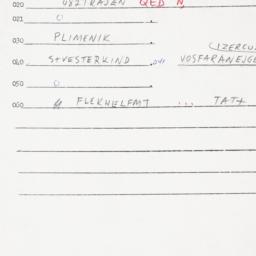 020 U82TRAJEN QED N
021 0
030 PLIMENIK
(IZERCU
040 S+VESTERKIND 041 VOSFARANEJGE
050 0
060 FLEKHELFMT ... TAT+